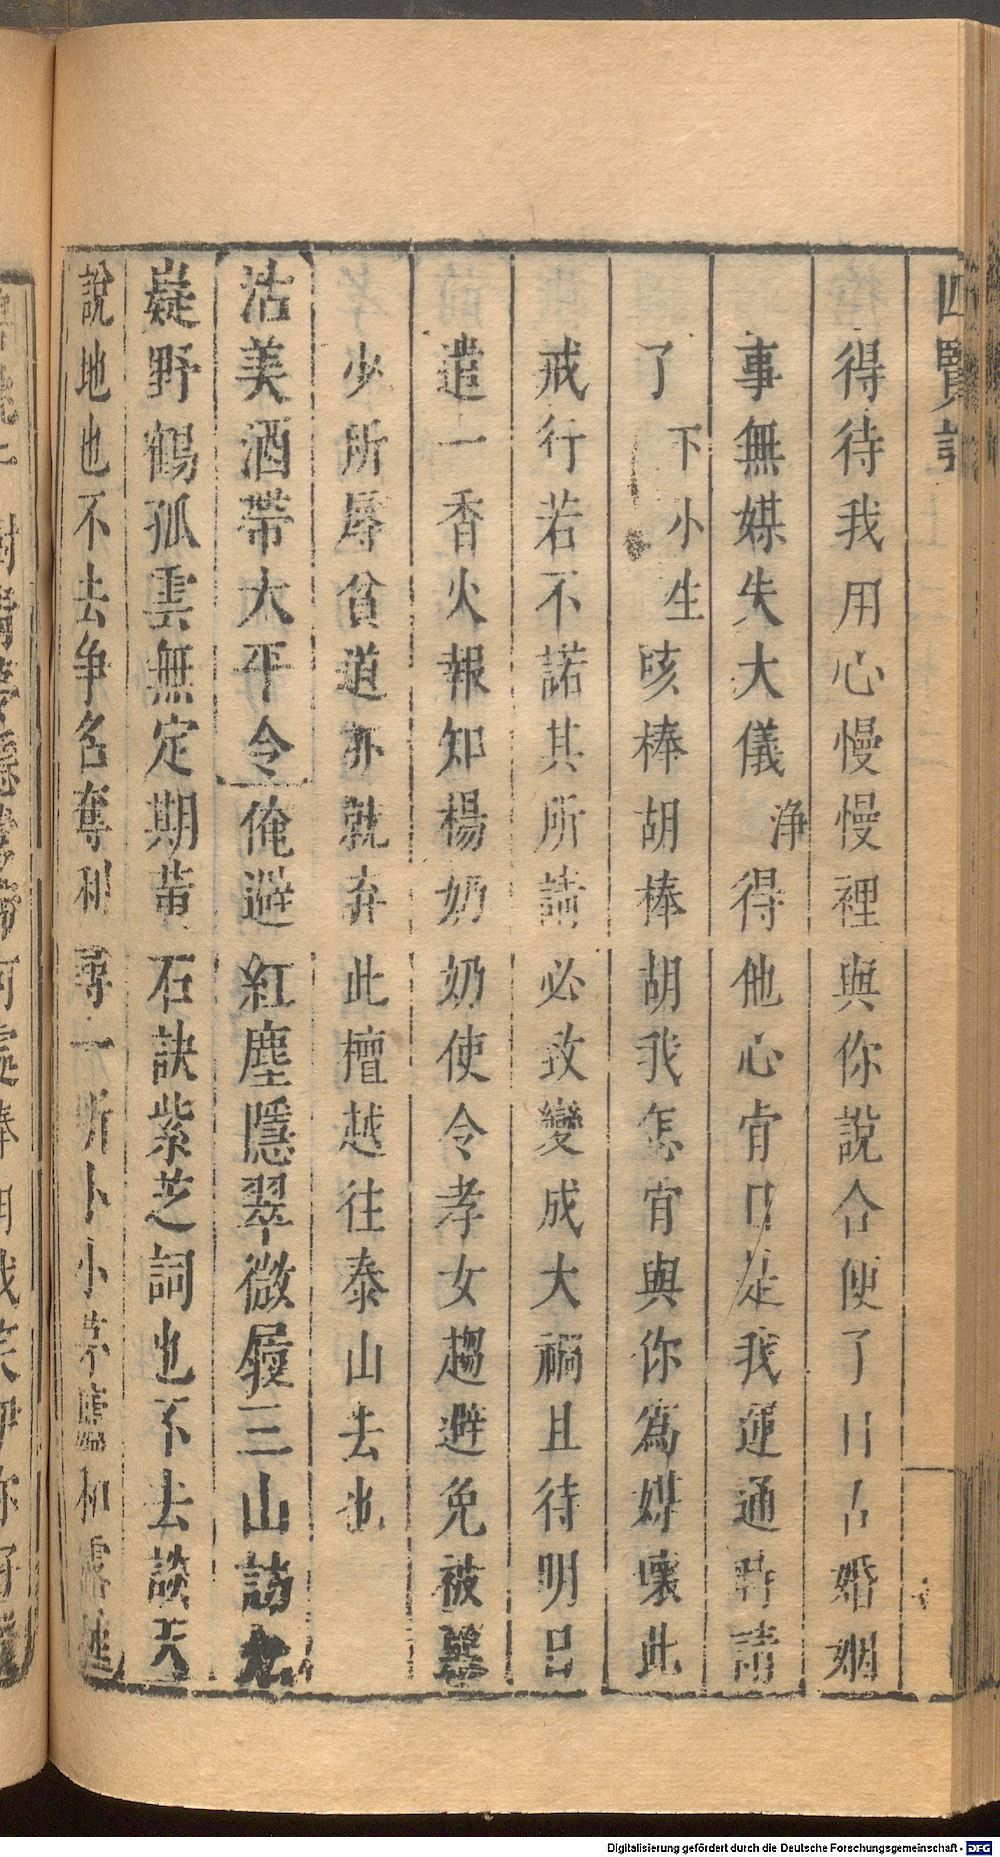 四賢記
得待我用心慢慢裡與你說合便了日占婚姻
事無媒失大儀 净 得他心肯日是我運通時請
了 下小生 咳棒胡棒胡我怎肯與你為媒壞此
戒行若不諾其所請必致變成大禍且待明日
遣一香火報知楊奶奶使令孝女趨避免被惡
少所辱貧道亦就弃此檀越往泰山去也
沽美酒帶太平令 俺避紅塵隱翠微屐三山訪九
嶷野鶴孤雲無定期黃石訣紫芝詞也不去談天
說地也不去争名奪利尋一所小小茅廬和露
Digitalisierung gefördert durch die Deutsche Forschungsgemeinschaft - DFG